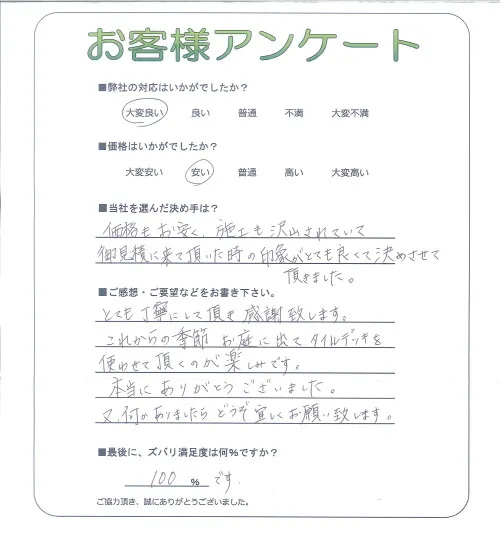 お客様アンケート
■弊社の対応はいかがでしたか？
大変良い 良い 普通 不満 大変不満
■価格はいかがでしたか？
大変安い 安い 普通 高い 大変高い
■当社を選んだ決め手は？
価格もお安く、施工も沢山されていて
御見積に来て頂いた時の印象がとても良くて決めさせて
頂きました。
■ご感想・ご要望などをお書き下さい。
とても丁寧にして頂き感謝致します。
これからの季節 お庭に出てタイルデッキを
使わせて頂くのが楽しみです。
本当にありがとうございました。
又、何かありましたらどうぞ宜しくお願い致します。
■最後に、ズバリ満足度は何%ですか？
100 % です.
ご協力頂き、誠にありがとうございました。